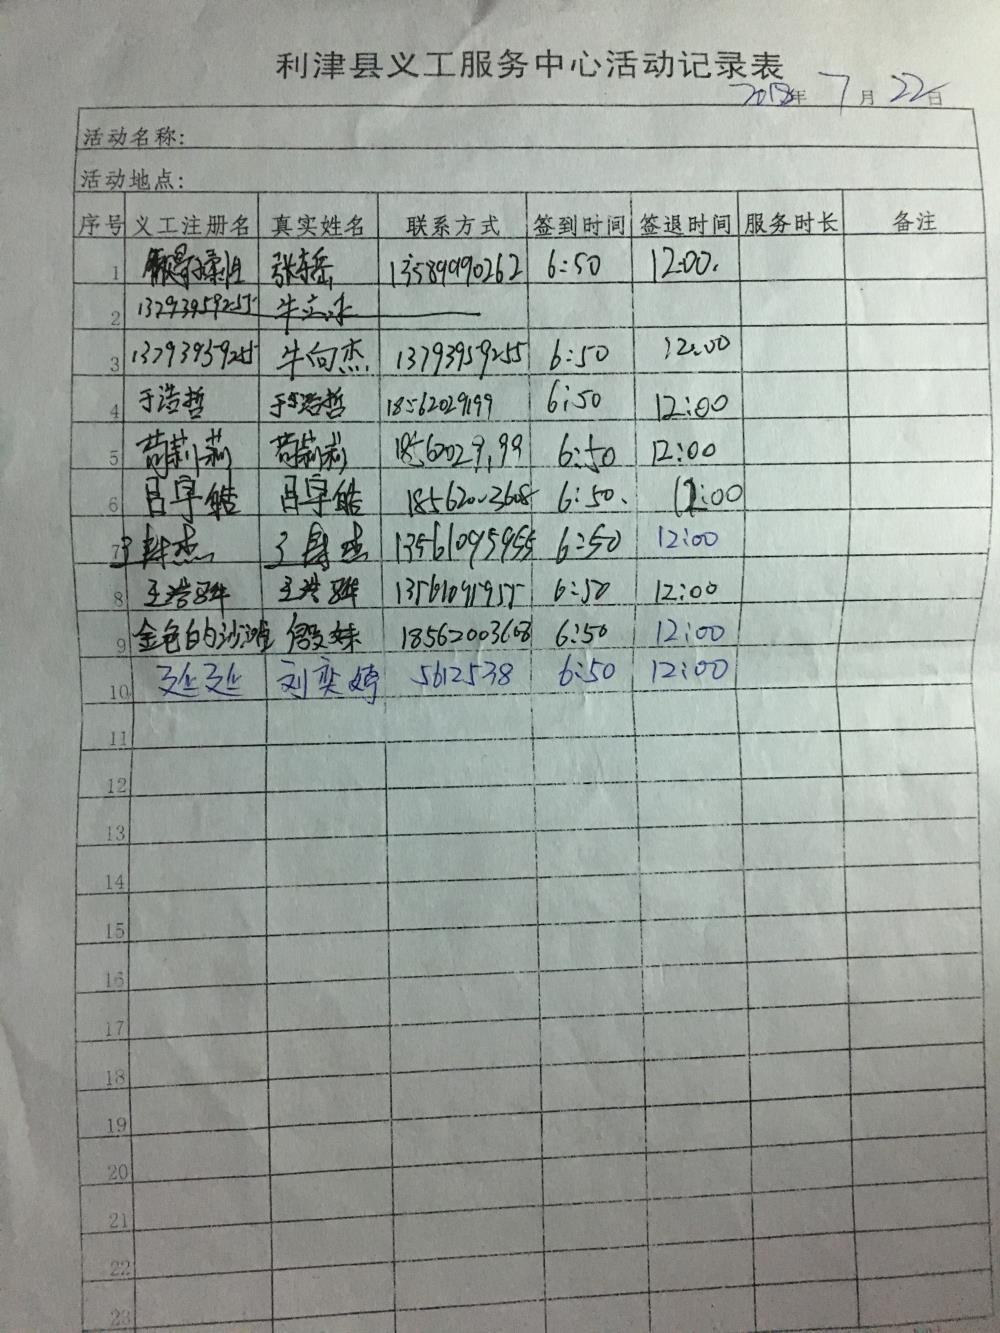 利津县义工服务中心活动记录表
2018年 7月 22日
活动名称:
活动地点:
序号 义工注册名 真实姓名 联系方式 签到时间 签退时间 服务时长 备注
1 张 13589990262 6:50 12:00.
2 13793959255 牛立冰
3 13793959255 牛向杰 13793959255 6:50 12:00
4 于浩哲 于浩哲 18562029199 6:50 12:00
5 苟莉莉 苟莉莉 18562029199 6:50 12:00
6 吕宇皓 吕宇皓 18562003608 6:50. 12:00
7 杰 杰 13561095955 6:50 12:00
8 王浩骅 王浩骅 13561095955 6:50 12:00
9 金色的沙滩 殷妹 18562003608 6:50 12:00
10 延延 刘奕婷 5612538 6:50 12:00
11
12
13
14
15
16
17
18
19
20
21
22
23